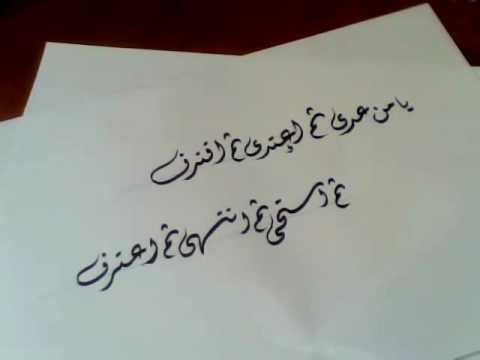 يا من عدى ثم إعتدى ثم اقترف
ثم استحى ثم انتهى ثم اعترف